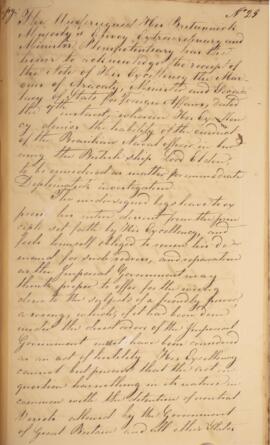 Nº 25
The Undersigned His Britannick
Majesty's Envoy Extraordinary and
Minister Plenipotentiary has the
honor to acknowledge the receipt of
the Note of His Excellency the Mar-
quis of Aracaty, Minister and Secre-
tary of State for Foreign Affairs, dated
the instant, wherein His Excellen-
cy denies the liability of the conduct
of the Brazilian Naval officer in bur-
ning the British ship
to be considered as matter for immediate
Diplomatick investigation.
The undersigned begs leave to ex-
press his entire dissent from the prin-
ciple set forth by His Excellency, and
feels himself obliged to renew his de-
mand for such redress, and reparation
as the Imperial Government may
think proper to offer for the wrong
done to the subjects of a friendly power,
a wrong, which, if it had been done
under the direct orders of the Imperial
Government must have been considered
as an act of hostility. His Excellency
cannot but perceive that the act in
question has nothing in its nature in
common with the detention of neutral
Vessels allowed by the Government
of Great Britain and all other States